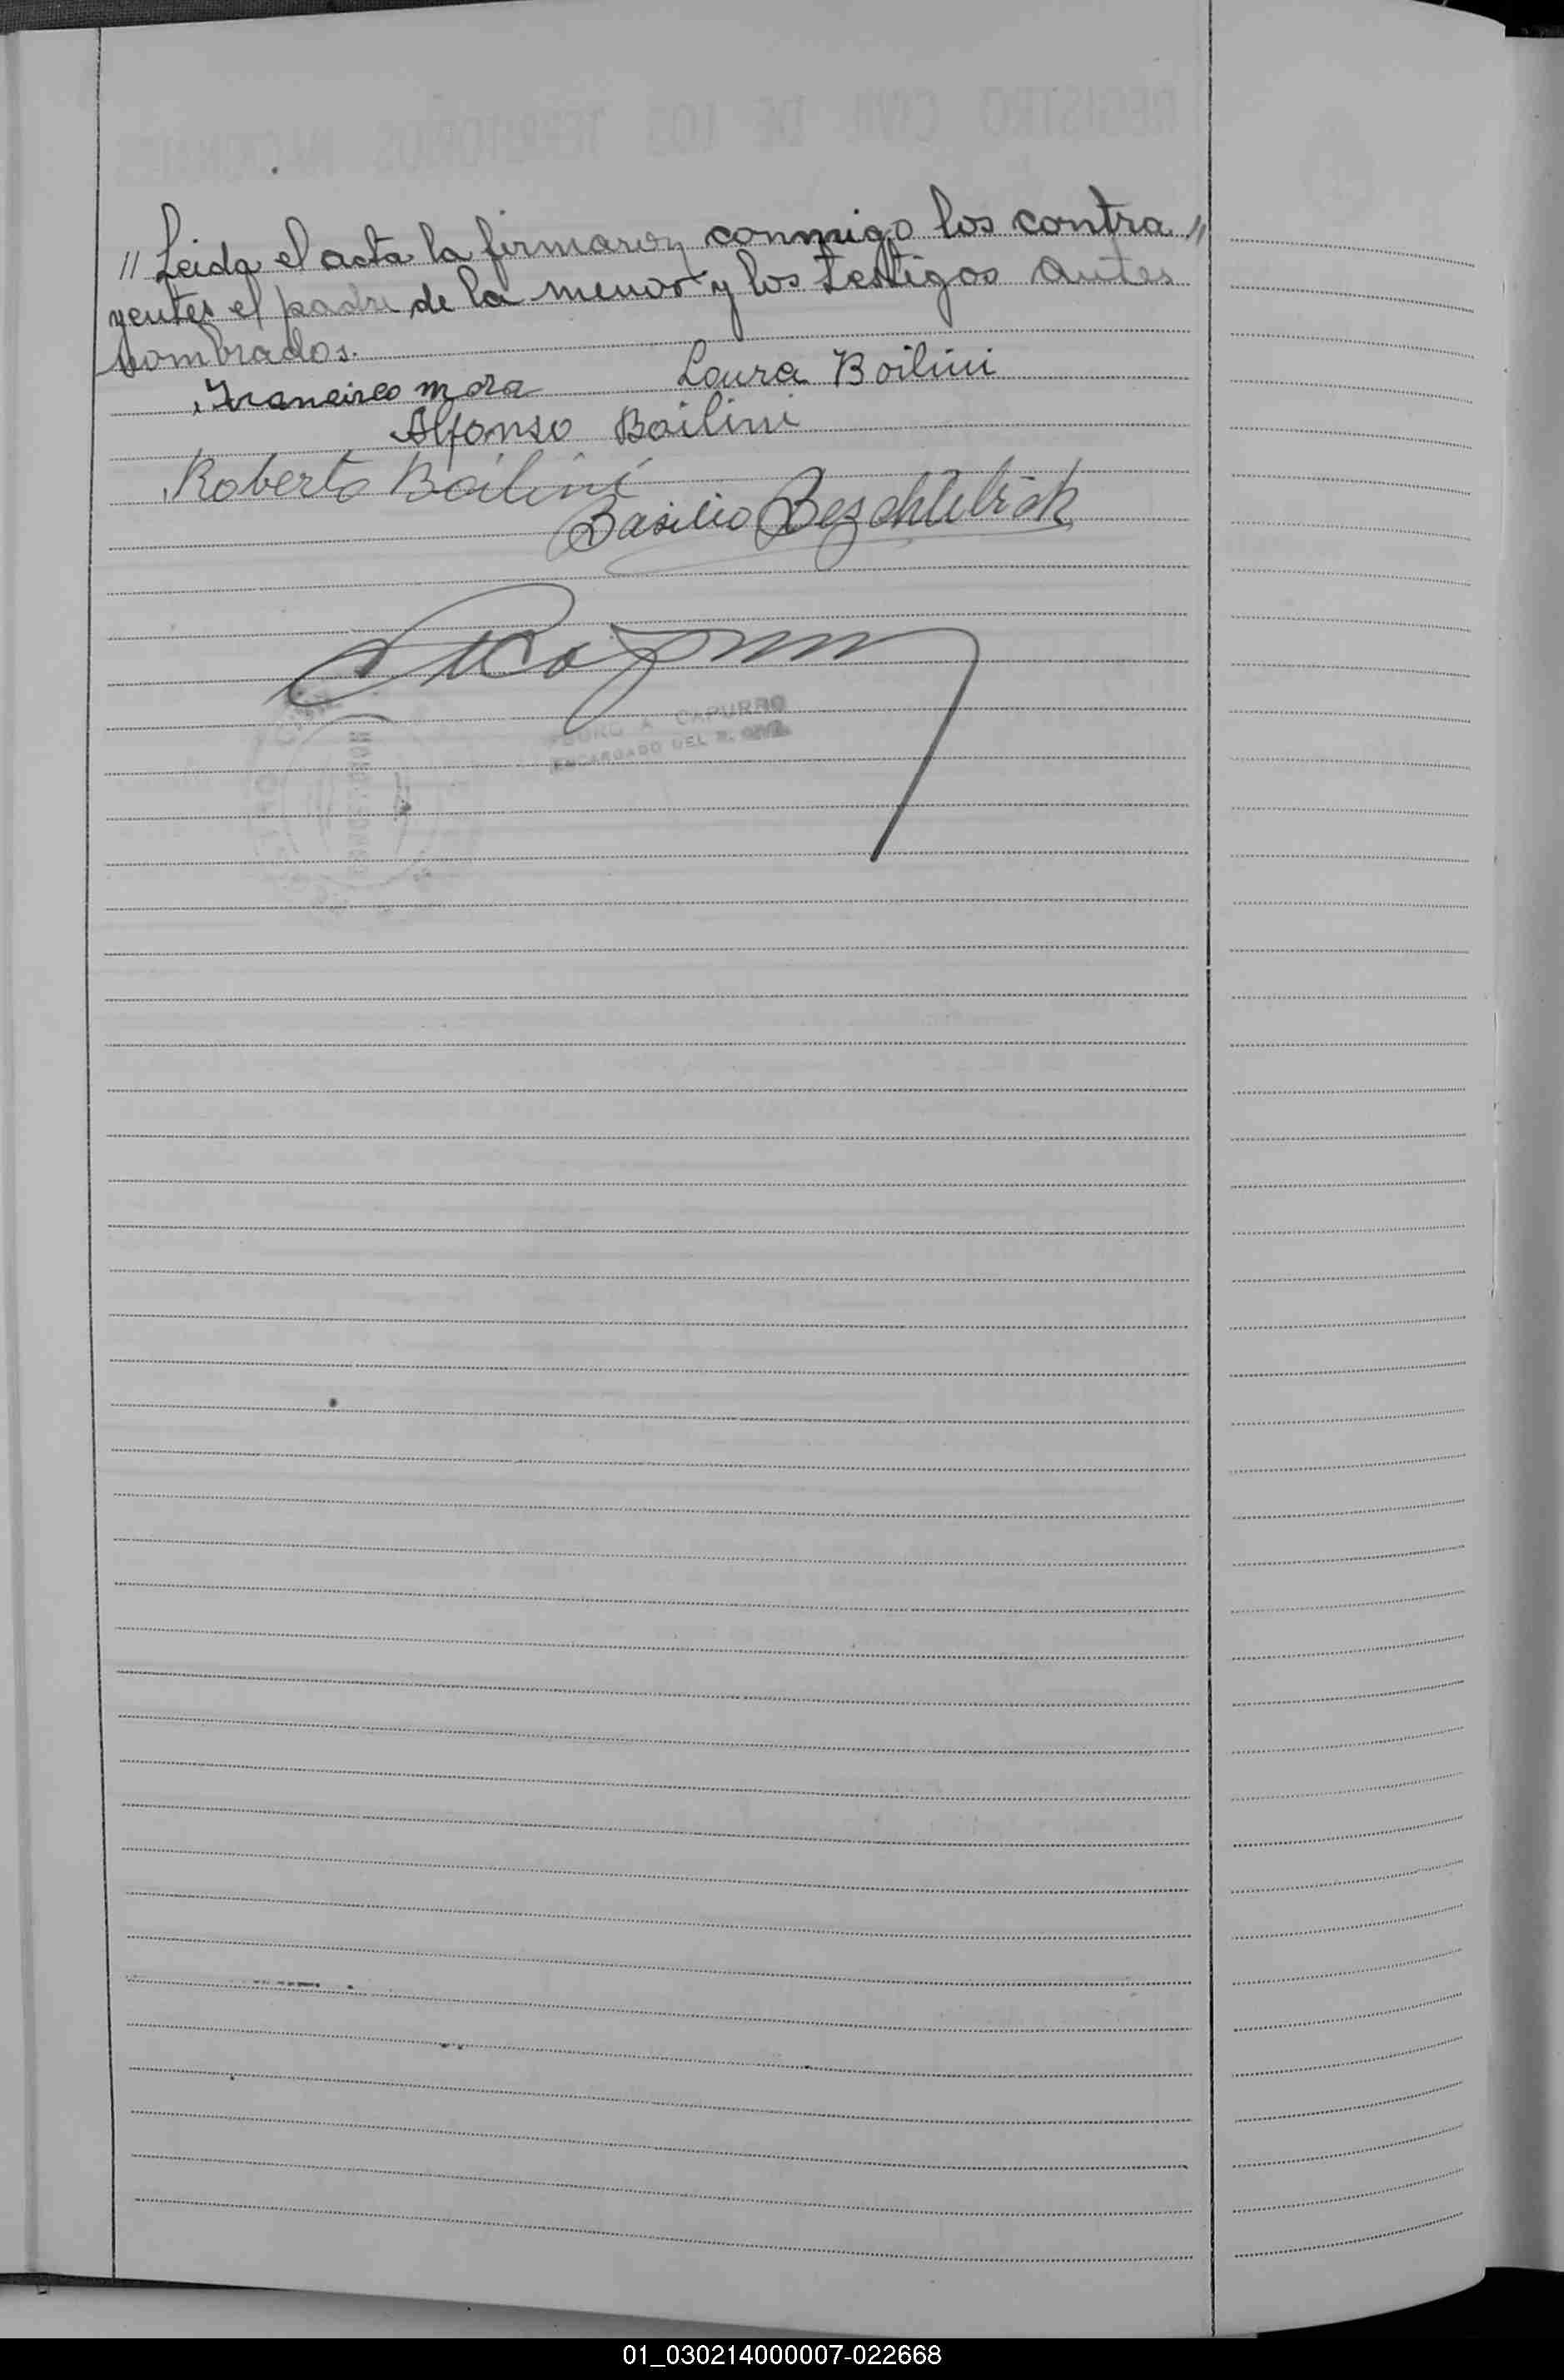 // Leida el acta la firmaron conmigo los contra //
yentes el padre de la menor y los testigos antes
nombrados.
Francisco Mora Laura Boilini
Alfonso Boilini
Roberto Boilini
Basilio
A CAPURRO
ENCARGADO DEL R. CIVIL
01_030214000007-022668